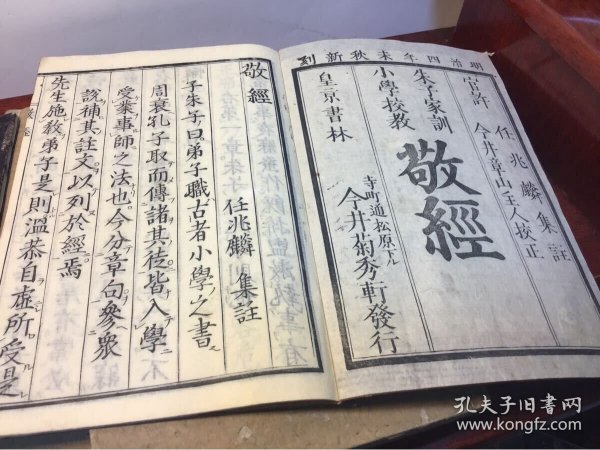 明治四年未秋新刻
官許
任兆麟集註
今井章山主人校正
朱子家訓
小學校教
敬經
皇京書林
寺町通松原下ル
今井菊秀軒發行
敬經
任兆麟集註
子朱子曰弟子職古者小學之書
周衰孔子取而傳諸其徒皆入學
受業事師之法也今分章句參衆
說補其註文以列於經焉
先生施教弟子是則溫恭自虛所受是
孔夫子旧書网
www.kongfz.com